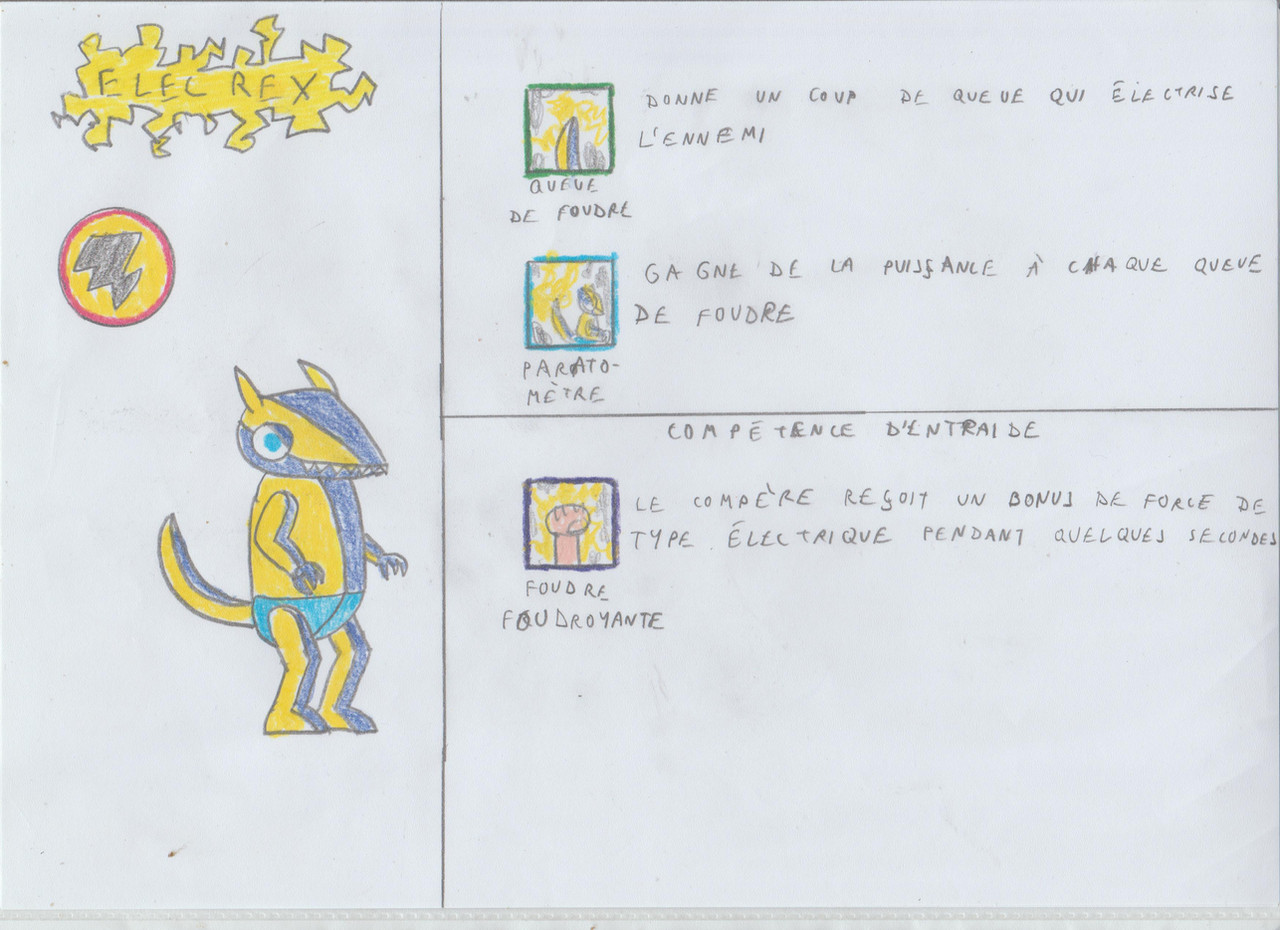 ELEC REX
DONNE UN COUP DE QUEUE QUI ÉLECTRISE
L'ENNEMI
QUEUE
DE FOUDRE
GAGNE DE LA PUISSANCE À CHAQUE QUEUE
DE FOUDRE
PARATO-
MÈTRE
COMPÉTENCE D'ENTRAIDE
LE COMPÈRE REÇOIT UN BONUS DE FORCE DE
TYPE ÉLECTRIQUE PENDANT QUELQUES SECONDES
FOUDRE
FOUDROYANTE